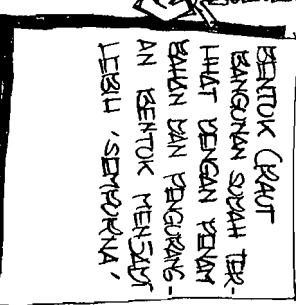 BENTUK (RAUT
BANGUNAN SUDAH TER-
LIHAT DENGAN PENAM
BAHAN DAN PENGURANG-
AN BENTUK MENJADI
LEBIH 'SEMPURNA'